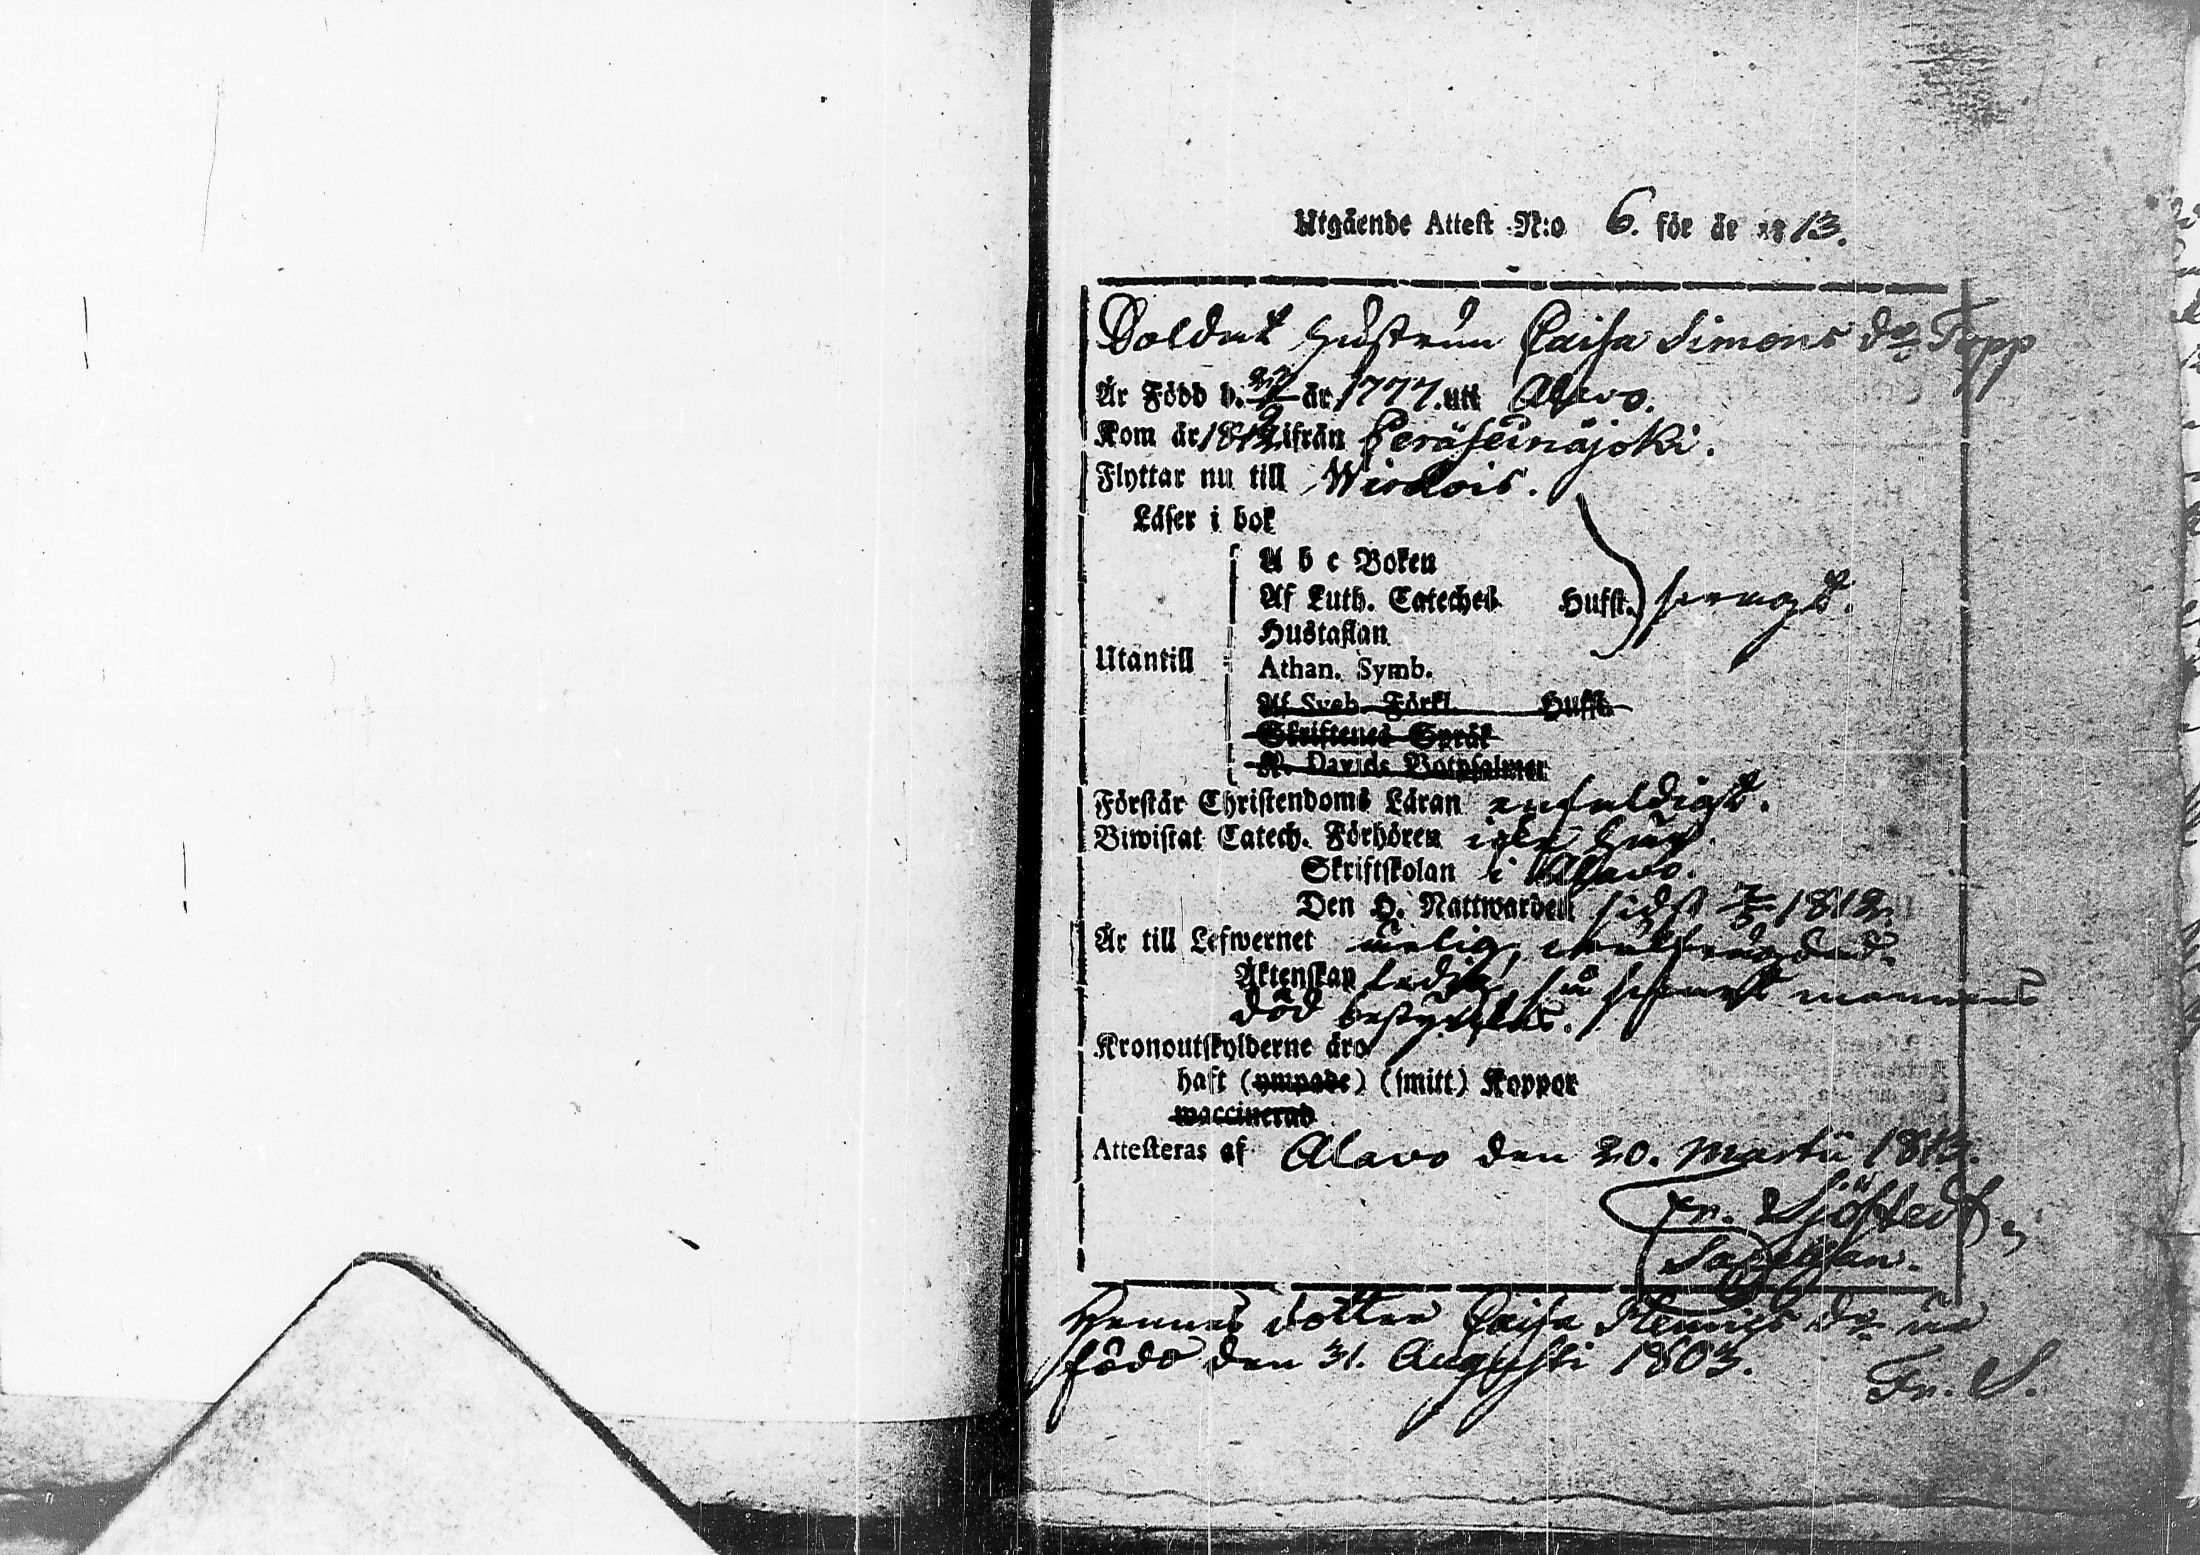 Utgående Attest N:o 6. för år 1813.
Soldat hustrun Caisa Simons dr Topp
Är Född d. 27/9 år 1777. uti Alavo.
Kom år 1812 ifrån Peräseinäjoki.
Flyttar nu till Wirdois.
Läser i bok
A b c Boken
Af Luth. Cateches Hufst. swagt.
Hustaflan
Utantill
Athan. Symb.
Af Sveb. Förkl. Hufst.
Skriftenes Språk
K. Davids Botpsalmer
Förstår Christendoms Läran enfaldigt.
Biwistat Catech. Förhören
Skriftskolan i Alavo.
Den H. Nattwarden sidst 1812.
Är till Lefwernet
Äktenskap ledig, så mannens
död bestyrkes.
Kronoutskylderne äro
haft (ympade) (smitt) Koppor
waccinerad
Attesteras af Alavo den 20. Martii 1813.
Fr. Sjöstedt,
Sacellan.
Hennes dotter Caisa dr är
född den 31. Augusti 1803.
Fr. S.